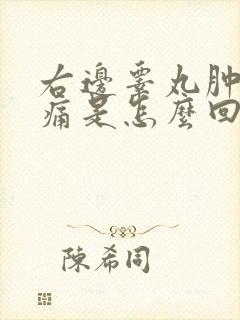 右邊睾丸肿
痛是怎麼回
陳希同